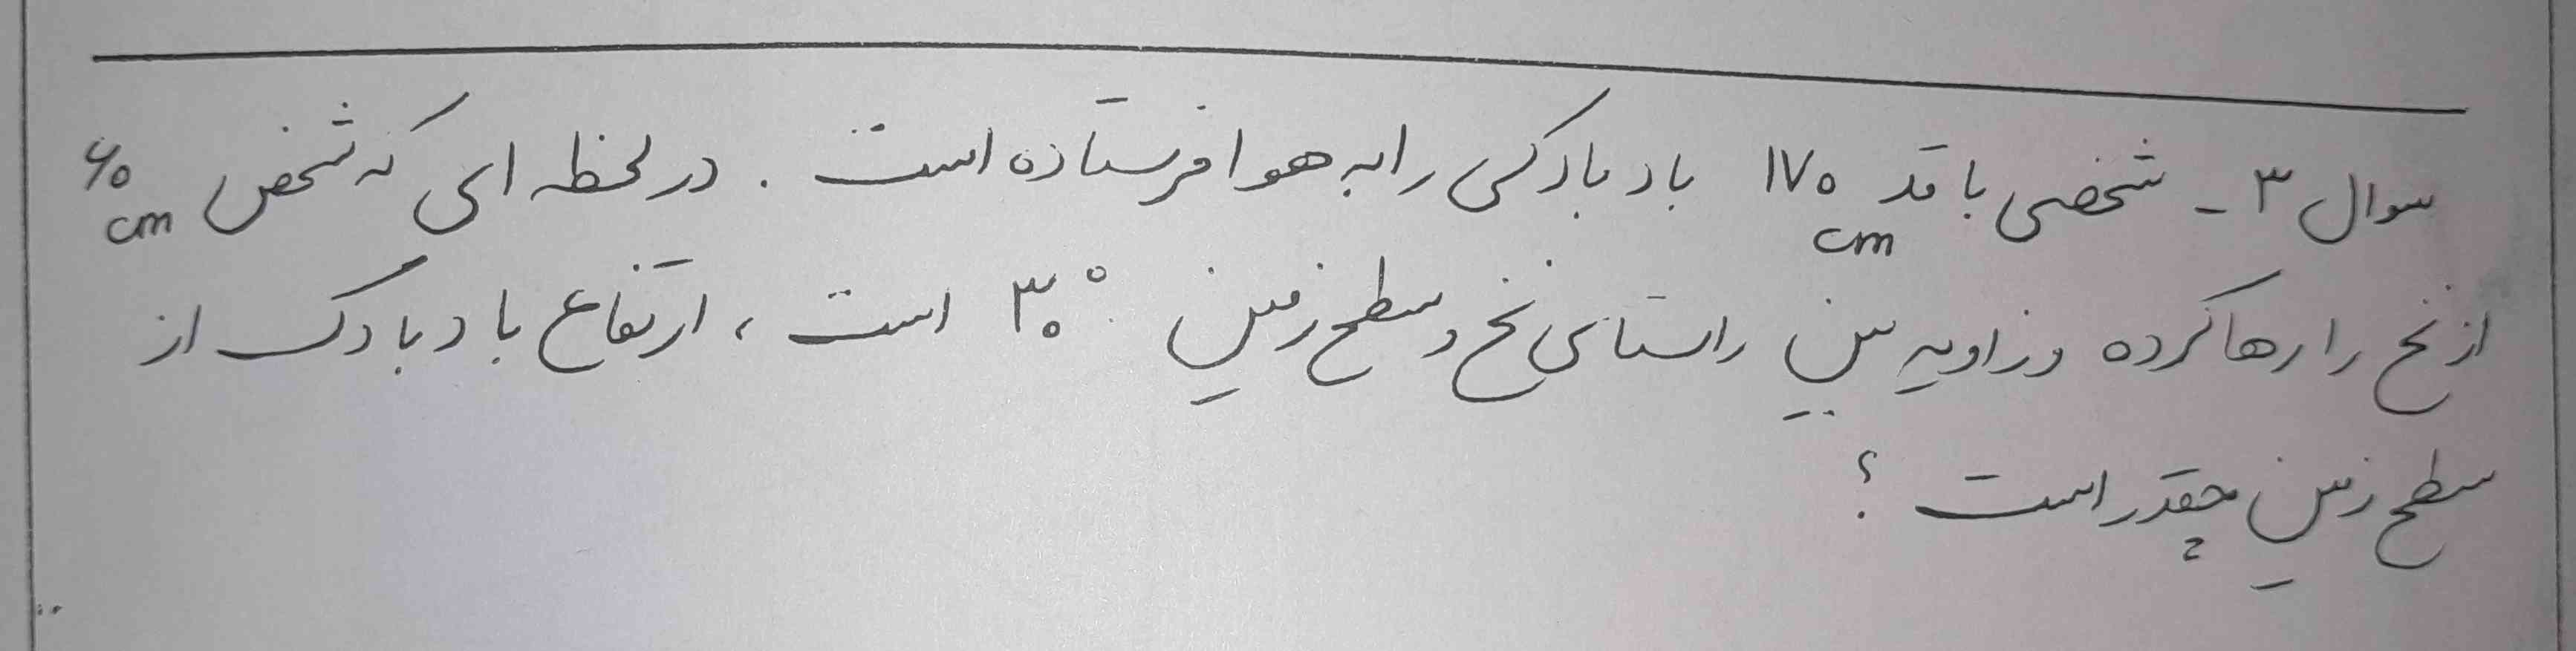 سوال ۳ - شخصی با قد ۱۷۰ cm بادبادکی را به هوا فرستاده است . در لحظه ای که شخص ۶۰ cm
از نخ را رها کرده و زاویه بین راستای نخ و سطح زمین ۳۰° است ، ارتفاع بادبادک از
سطح زمین چقدر است ؟